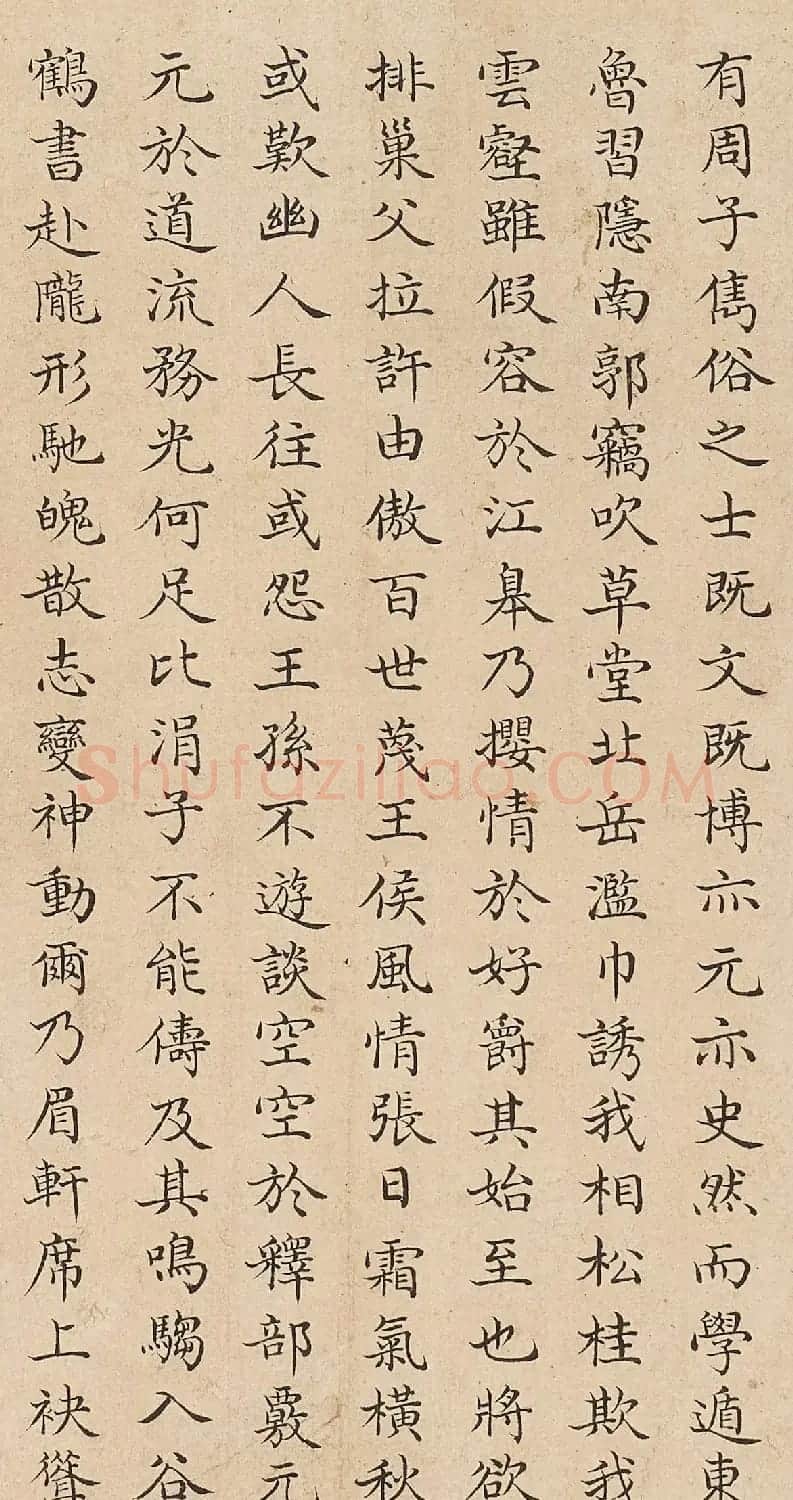 有周子儁俗之士既文既博亦元亦史然而學遁東
魯習隱南郭竊吹草堂北岳濫巾誘我相松桂欺我
雲壑雖假容於江皋乃攖情於好爵其始至也將欲
排巢父拉許由傲百世蔑王侯風情張日霜氣橫秋
或歎幽人長往或怨王孫不遊談空空於釋部覈元
元於道流務光何足比涓子不能儔及其鳴騶入谷
鶴書赴隴形馳魄散志變神動爾乃眉軒席上袂聳
Shufaziliao.COM